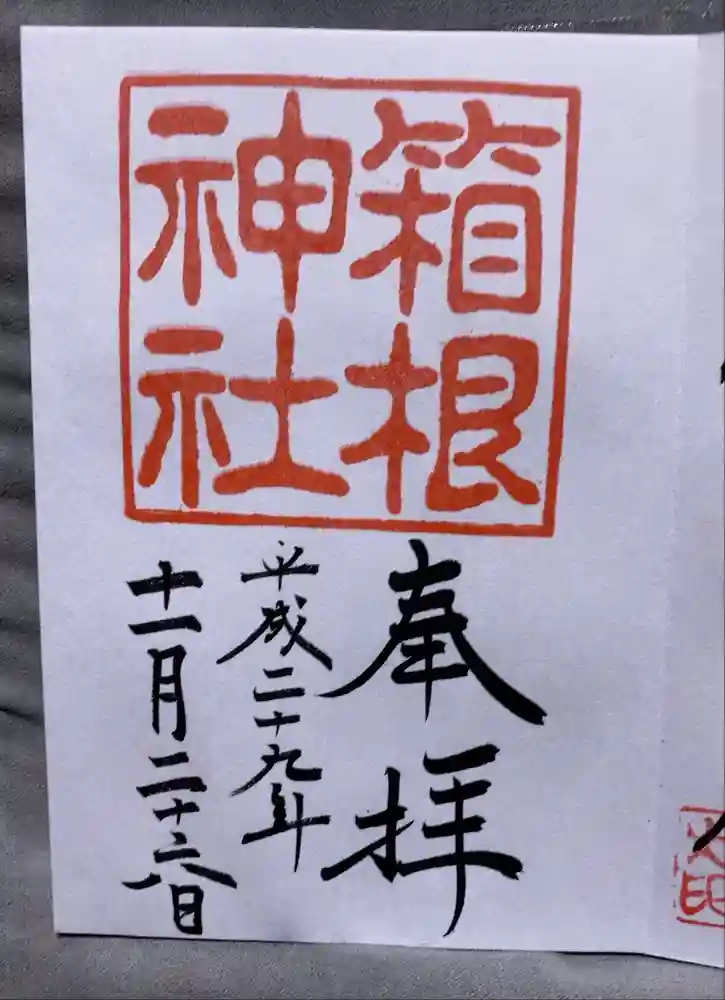 箱根
神社
奉拝
平成二十九年
十一月二十六日